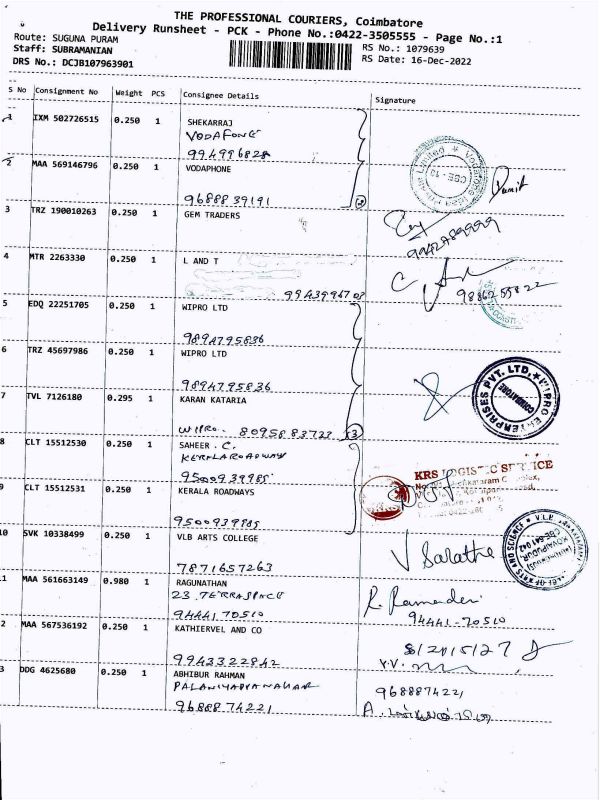 THE PROFESSIONAL COURIERS, Coimbatore
Delivery Runsheet - PCK - Phone No.:0422-3505555 - Page No.:1
Route: SUGUNA PURAM
RS No.: 1079639
Staff: SUBRAMANIAN
RS Date: 16-Dec-2022
DRS No.: DCJB107963901
S No Consignment No Weight PCS Consignee Details Signature
1 IXM 502726515 0.250 1 SHEKARRAJ
VODAFONE
994996828
2 MAA 569146796 0.250 1 VODAPHONE
9688839191
3 TRZ 190010263 0.250 1 GEM TRADERS
4 MTR 2263330 0.250 1 L AND T
9943994703
9886255822
5 EDQ 22251705 0.250 1 WIPRO LTD
9894795836
6 TRZ 45697986 0.250 1 WIPRO LTD
9894795836
WIPRO ENTERPRISES PVT. LTD.
COIMBATORE
7 TVL 7126180 0.295 1 KARAN KATARIA
WIPRO. 8095883723
8 CLT 15512530 0.250 1 SAHEER . C.
KERALA ROADWAY
9500939985
KRS LOGISTIC SERVICE
9 CLT 15512531 0.250 1 KERALA ROADWAYS
9500939985
10 SVK 10338499 0.250 1 VLB ARTS COLLEGE
7871657263
V Sarathe
11 MAA 561663149 0.980 1 RAGUNATHAN
23 TERRASPACE
94441 70510
94441-70510
2 MAA 567536192 0.250 1 KATHIERVEL AND CO
9943322842
V.V.
3 DDG 4625680 0.250 1 ABHIBUR RAHMAN
9688874221
9688874221